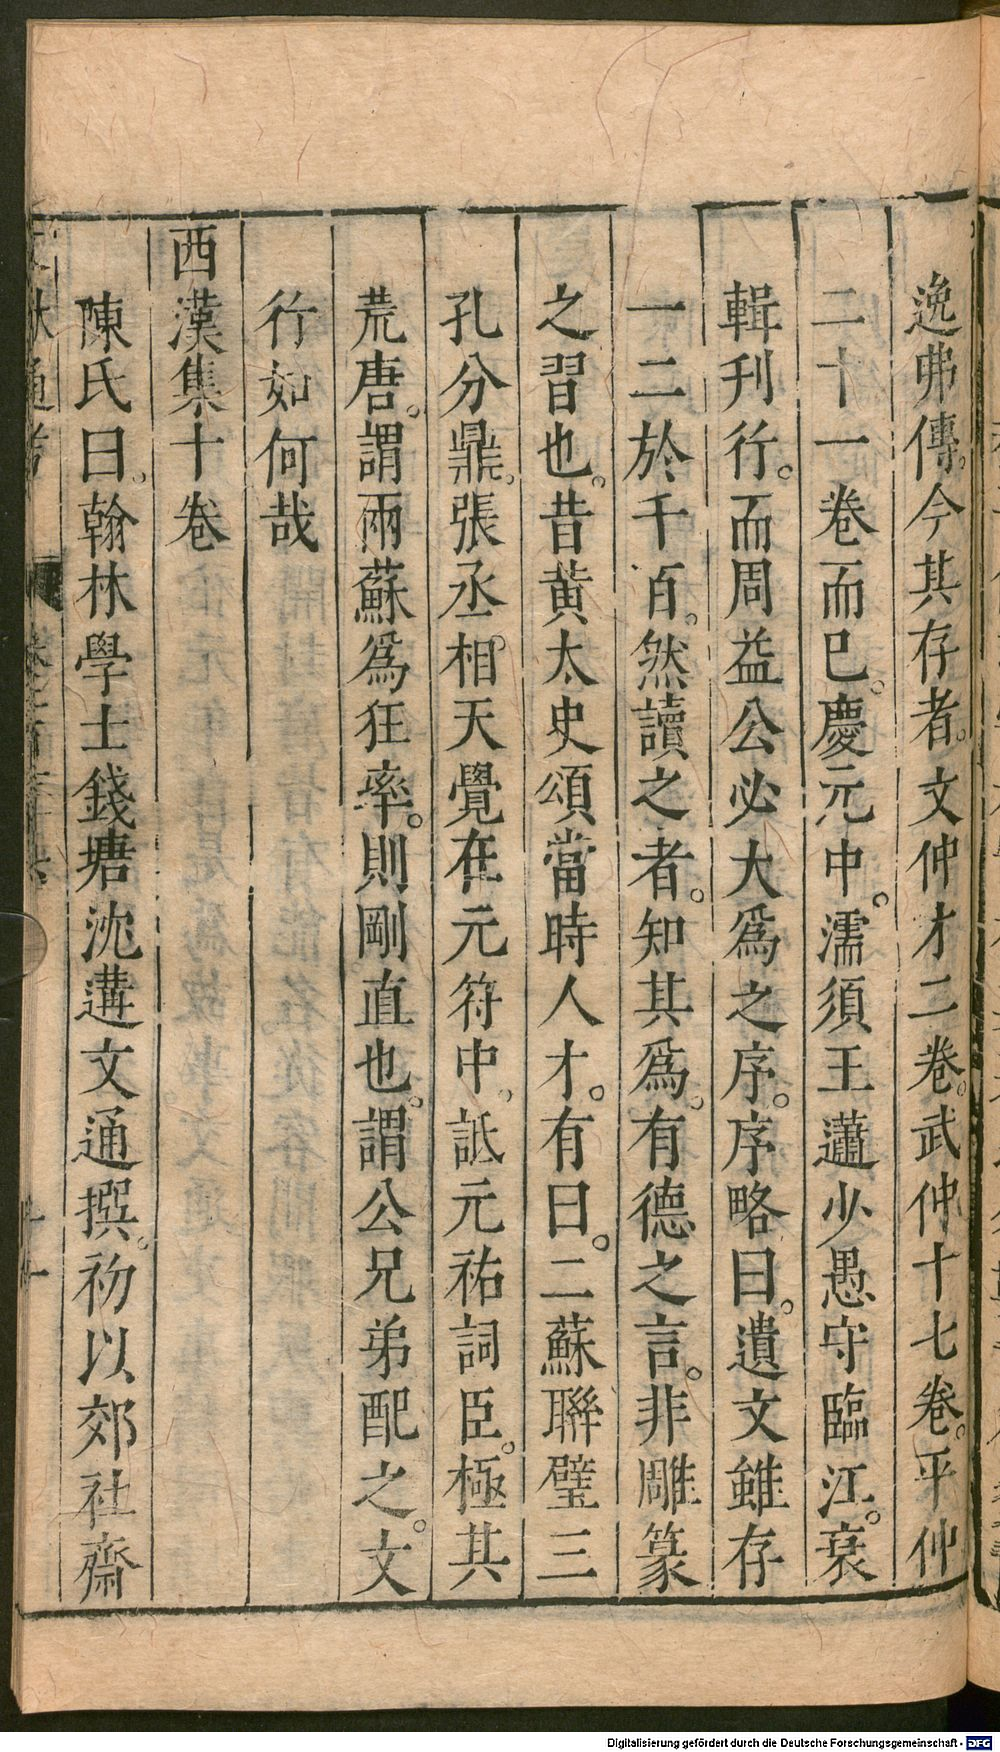 逸弗傳。今其存者。文仲才二卷。武仲十七卷。平仲
二十一卷而已。慶元中。濡須王薳少愚守臨江。裒
輯刊行。而周益公必大爲之序。序略曰。遺文雖存
一二於千百。然讀之者。知其爲。有德之言。非雕篆
之習也。昔黄太史頌當時人才。有曰。二蘇聯璧三
孔分鼎。張丞。相天覺在元符中。詆元祐詞臣。極其
荒唐。謂兩蘇爲狂率。則剛直也。謂公兄弟配之。文
行如何哉
西漢集十卷
陳氏曰。翰林學士錢塘沈遘文通撰。初以郊社齋
通考
Digitalisierung gefördert durch die Deutsche Forschungsgemeinschaft - DFG